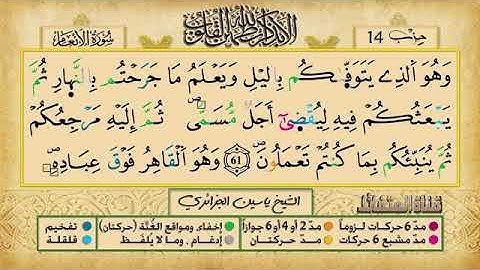 سورة الأنعام
ألا بذكر الله تطمئن القلوب
حزب 14
وَهُوَ الَّذِي يَتَوَفَّىٰكُم بِاليْلِ وَيَعْلَمُ مَا جَرَحْتُم بِالنَّهارِ ثُمَّ
يَبْعَثُكُمْ فِيهِ لِيُقْضَىٰٓ أَجَلٌ مُّسَمًّى ثُمَّ إِلَيْهِ مَرْجِعُكُمْ
ثُمَّ يُنَبِّئُكُم بِمَا كُنتُمْ تَعْمَلُونَ 61 وَهُوَ اَلْقَاهِرُ فَوْقَ عِبَادِهِ
الشيخ ياسين الجزائري
مدّ 6 حركات لزوماً مدّ 2 أو 4 أو 6 جوازاً إخفاء، ومواقع الغُنَّة (حركتان) تفخيم
مدّ مشبع 6 حركات مدّ حركتان إدغام، وما لا يُلفَظ قلقلة